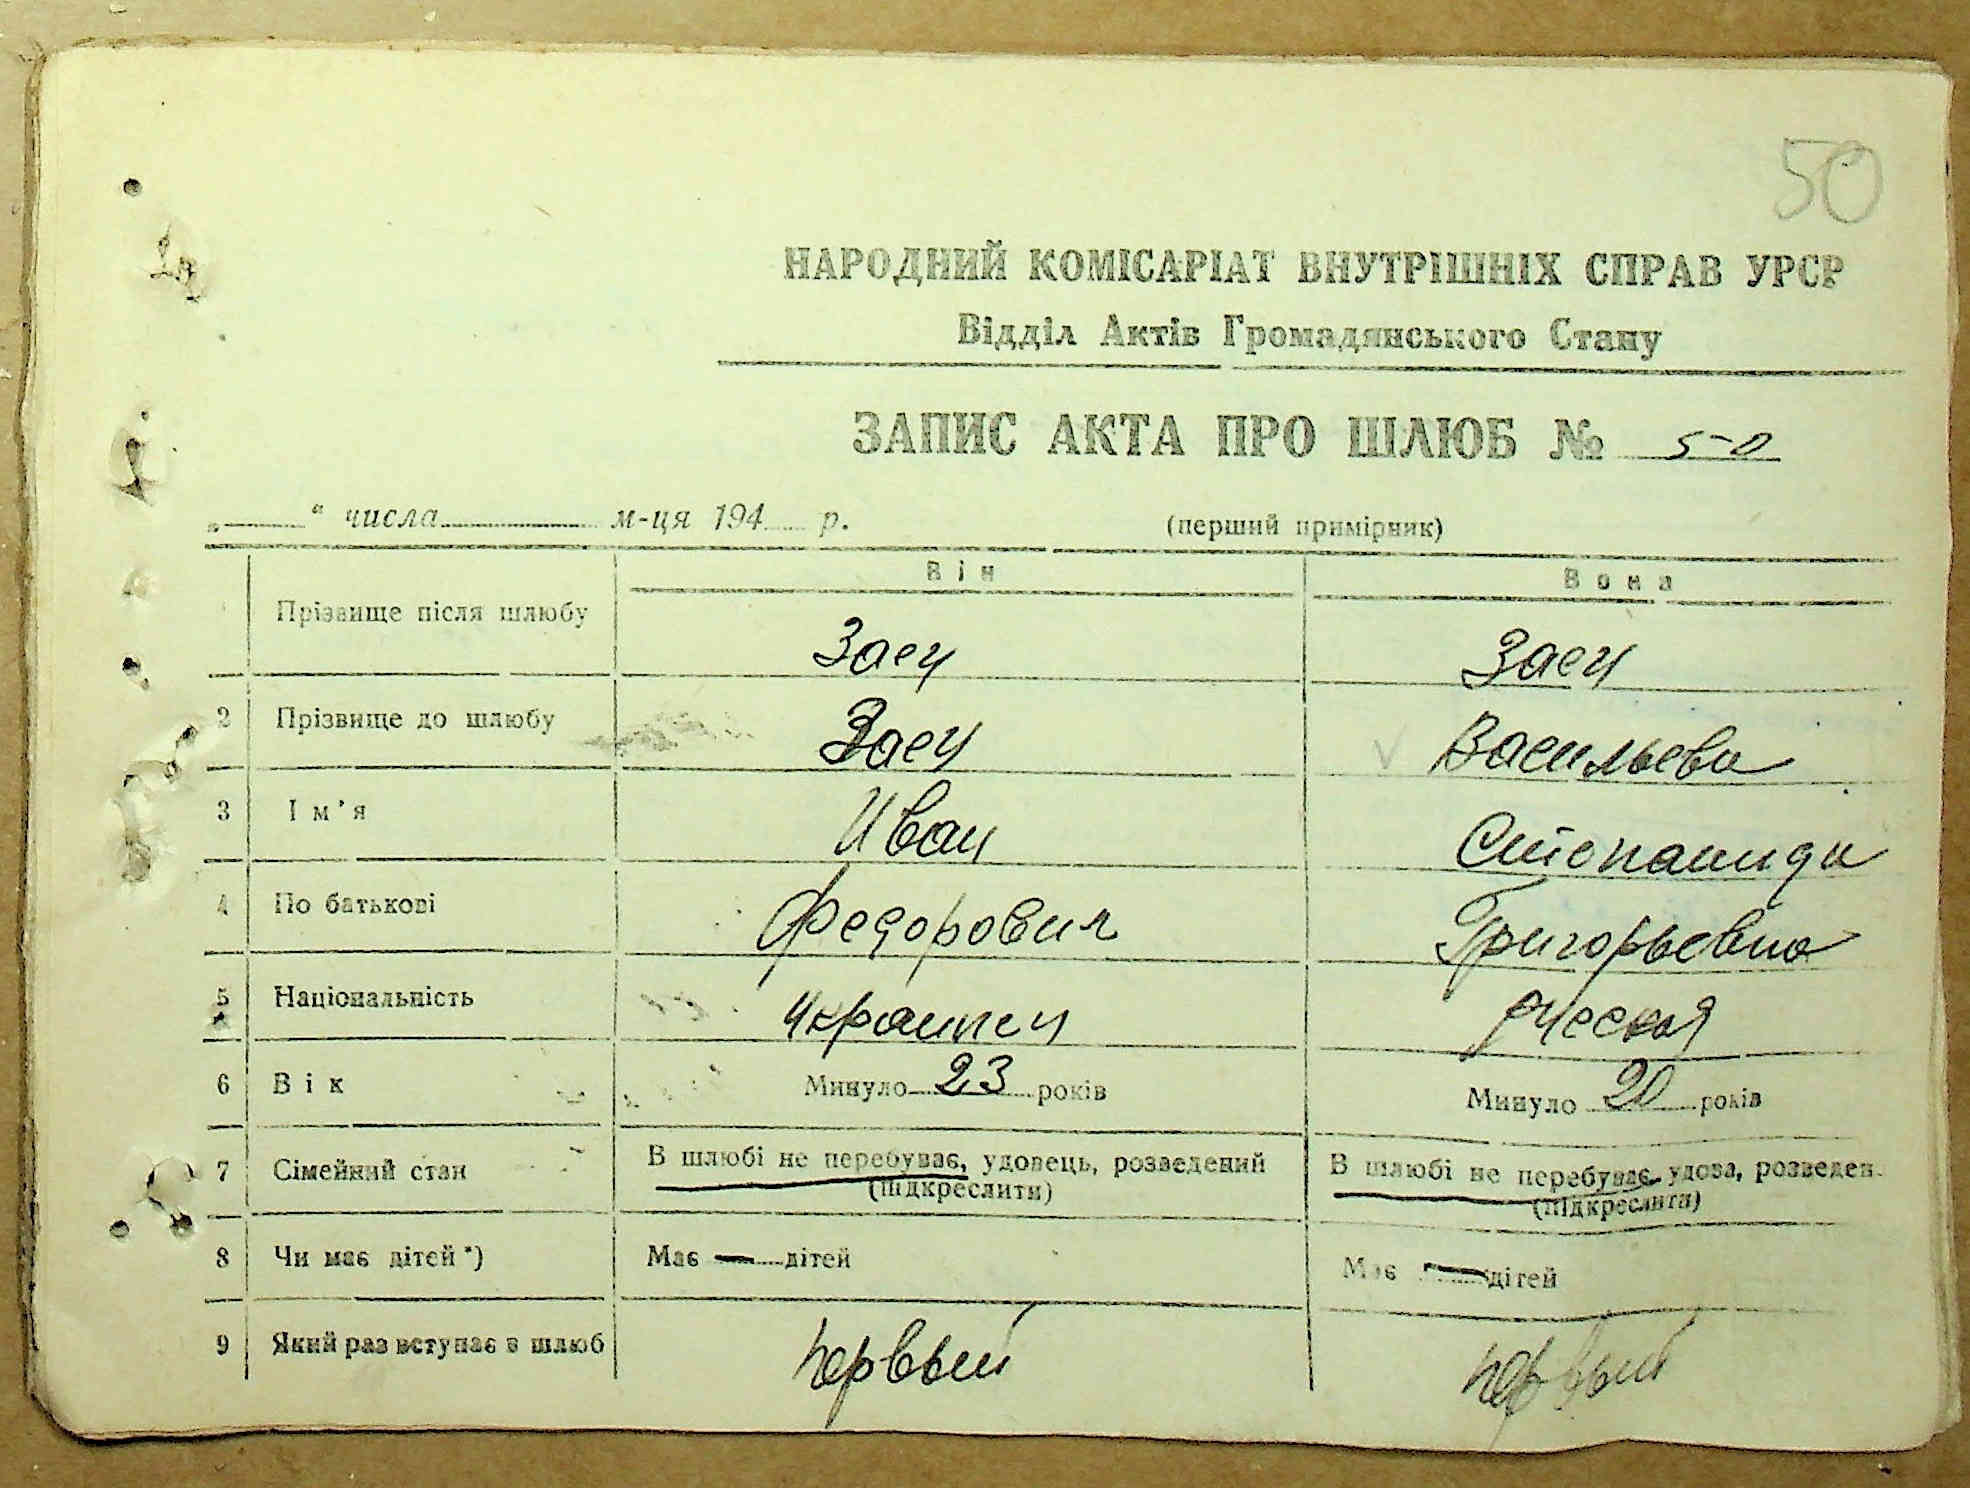 50
НАРОДНИЙ КОМІСАРІАТ ВНУТРІШНІХ СПРАВ УРСР
Відділ Актів Громадянського Стану
ЗАПИС АКТА ПРО ШЛЮБ № 50
„ “ числа м-ця 194 р. (перший примірник)
Він Вона
Прізвище після шлюбу Заец Заец
2 Прізвище до шлюбу Заец Васильева
3 Ім’я Иван Степанида
4 По батькові Федорович Григорьевна
5 Національність украинец русская
6 Вік Минуло 23 років Минуло 20 років
7 Сімейний стан В шлюбі не перебуває, удовець, розведений В шлюбі не перебуває удова, розведен.
(підкреслити) (підкреслити)
8 Чи має дітей *) Має — дітей Має — дітей
9 Який раз вступає в шлюб первый первый